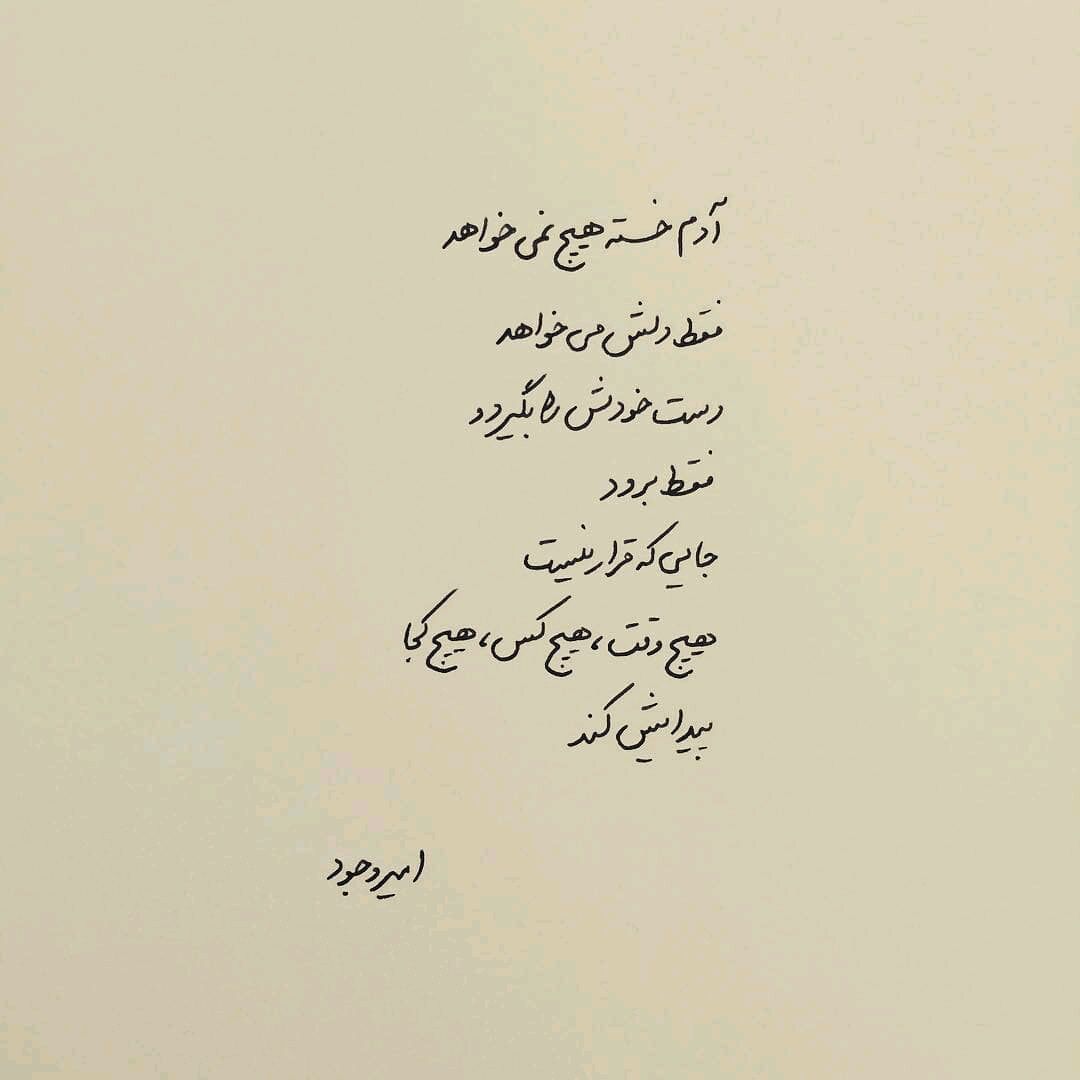 آدم خسته هیچ نمی خواهد
فقط دلش می خواهد
دست خودش را بگیرد و
فقط برود
جایی که قرار نیست
هیچ وقت، هیچ کس، هیچ کجا
پیدایش کند
امیر وجود